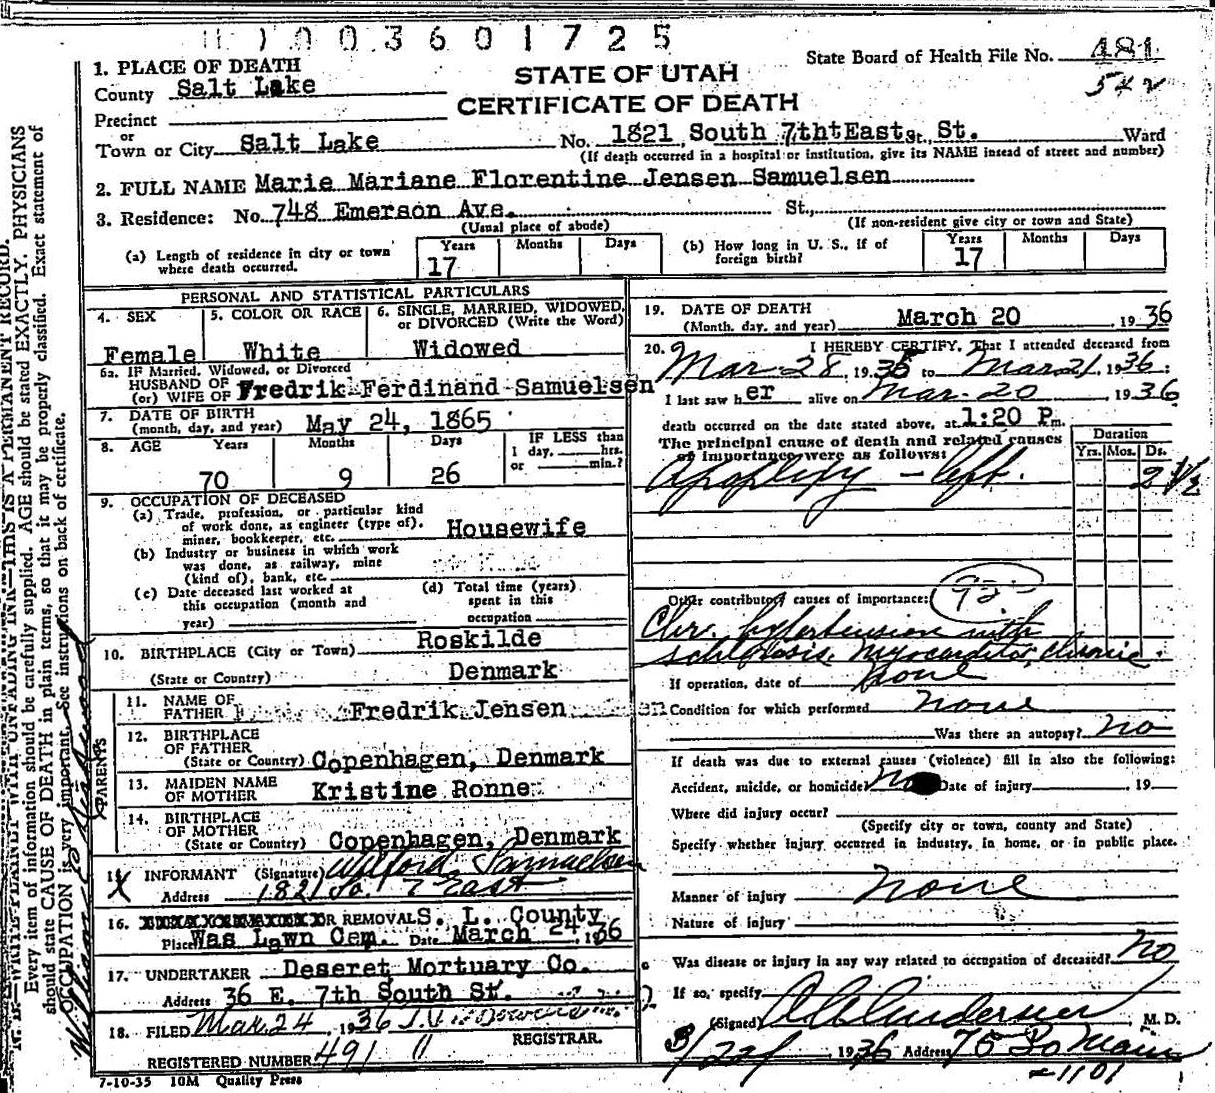 1003601725
State Board of Health File No. 481
542
STATE OF UTAH
CERTIFICATE OF DEATH
1. PLACE OF DEATH
County Salt Lake
Precinct
or
Town or City Salt Lake No. 1821 South 7tht East St. St. Ward
(If death occurred in a hospital or institution, give its NAME insead of street and number)
2. FULL NAME Marie Mariane Florentine Jensen Samuelsen
3. Residence: No. 748 Emerson Ave. St.,
(Usual place of abode) (If non-resident give city or town and State)
(a) Length of residence in city or town where death occurred. Years 17 Months Days
(b) How long in U. S., if of foreign birth? Years 17 Months Days
PERSONAL AND STATISTICAL PARTICULARS
4. SEX Female
5. COLOR OR RACE White
6. SINGLE, MARRIED, WIDOWED, or DIVORCED (Write the Word) Widowed
6a. IF Married, Widowed, or Divorced
HUSBAND OF
(or) WIFE OF Fredrik Ferdinand Samuelsen
7. DATE OF BIRTH
(month, day, and year) May 24, 1865
8. AGE Years 70 Months 9 Days 26 IF LESS than 1 day, hrs. or min.?
9. OCCUPATION OF DECEASED
(a) Trade, profession, or particular kind
of work done, as engineer (type of),
miner, bookkeeper, etc. Housewife
(b) Industry or business in which work
was done, as railway, mine
(kind of), bank, etc.
(c) Date deceased last worked at
this occupation (month and
year)
(d) Total time (years)
spent in this
occupation
10. BIRTHPLACE (City or Town) Roskilde
(State or Country) Denmark
PARENTS
11. NAME OF
FATHER Fredrik Jensen
12. BIRTHPLACE
OF FATHER
(State or Country) Copenhagen, Denmark
13. MAIDEN NAME
OF MOTHER Kristine Ronne
14. BIRTHPLACE
OF MOTHER
(State or Country) Copenhagen, Denmark
15. INFORMANT (Signature) Wilford Samuelsen
Address 1821 So. 7 East
16. OR REMOVAL S. L. County
Place Was Lawn Cem. Date March 24 1936
17. UNDERTAKER Deseret Mortuary Co.
Address 36 E. 7th South St.
18. FILED Mar. 24, 1936
REGISTRAR.
REGISTERED NUMBER 491
7-10-35 10M Quality Press
19. DATE OF DEATH
(Month, day, and year) March 20, 1936
20. I HEREBY CERTIFY, That I attended deceased from
Mar. 28 1935 to Mar 21 1936:
I last saw her alive on Mar. 20 1936
death occurred on the date stated above, at 1:20 P.m.
The principal cause of death and related causes
of importance were as follows:
Duration
Yrs. Mos. Ds.
Apoplexy - left. 2 1/2
Other contributory causes of importance: 92
Chr. hypertension with
sclerosis, Myocarditis, Chronic.
If operation, date of none
Condition for which performed none
Was there an autopsy? no
If death was due to external causes (violence) fill in also the following:
Accident, suicide, or homicide? No Date of injury 19
Where did injury occur?
(Specify city or town, county and State)
Specify whether injury occurred in industry, in home, or in public place.
Manner of injury none
Nature of injury
Was disease or injury in any way related to occupation of deceased? no
If so, specify
(Signed) Anderson, M. D.
1936 Address 75 So Main
-1101
N. B.—WRITE PLAINLY WITH UNFADING INK—THIS IS A PERMANENT RECORD.
Every item of information should be carefully supplied. AGE should be stated EXACTLY. PHYSICIANS
should state CAUSE OF DEATH in plain terms, so that it may be properly classified. Exact statement of
OCCUPATION is very important. See instructions on back of certificate.